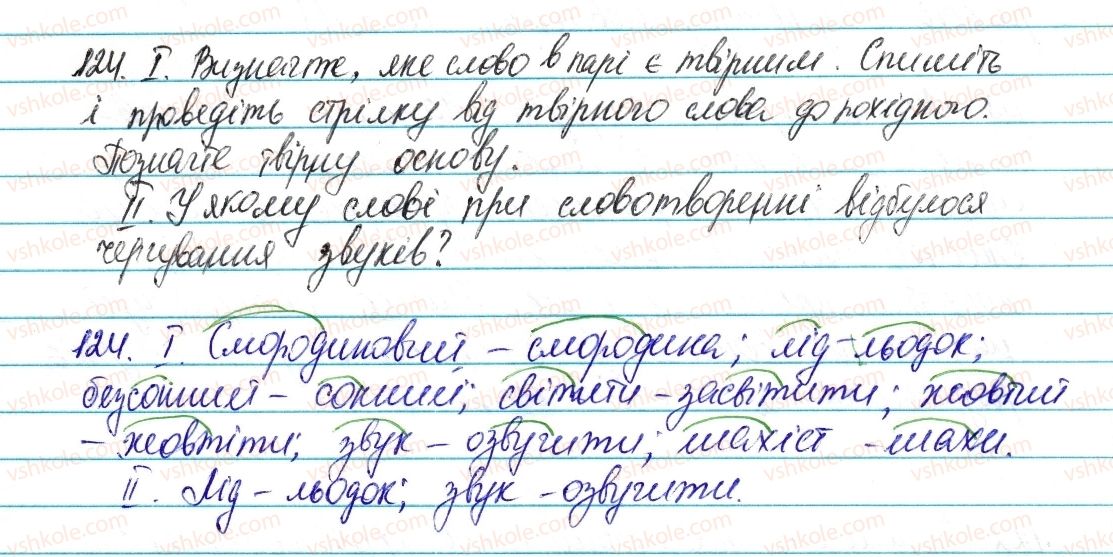 124. І. Визначте, яке слово в парі є твірним. Спишіть
і проведіть стрілку від твірного слова до похідного.
Позначте твірну основу.
ІІ. У якому слові при словотворенні відбулося
чергування звуків?
124. І Смородиновий – смородина; лід – льодок;
безсонний – сонний; світити – засвітити; жовтий
– жовтіти; звук – озвучити; шахіст – шахи.
ІІ. Лід – льодок; звук – озвучити.